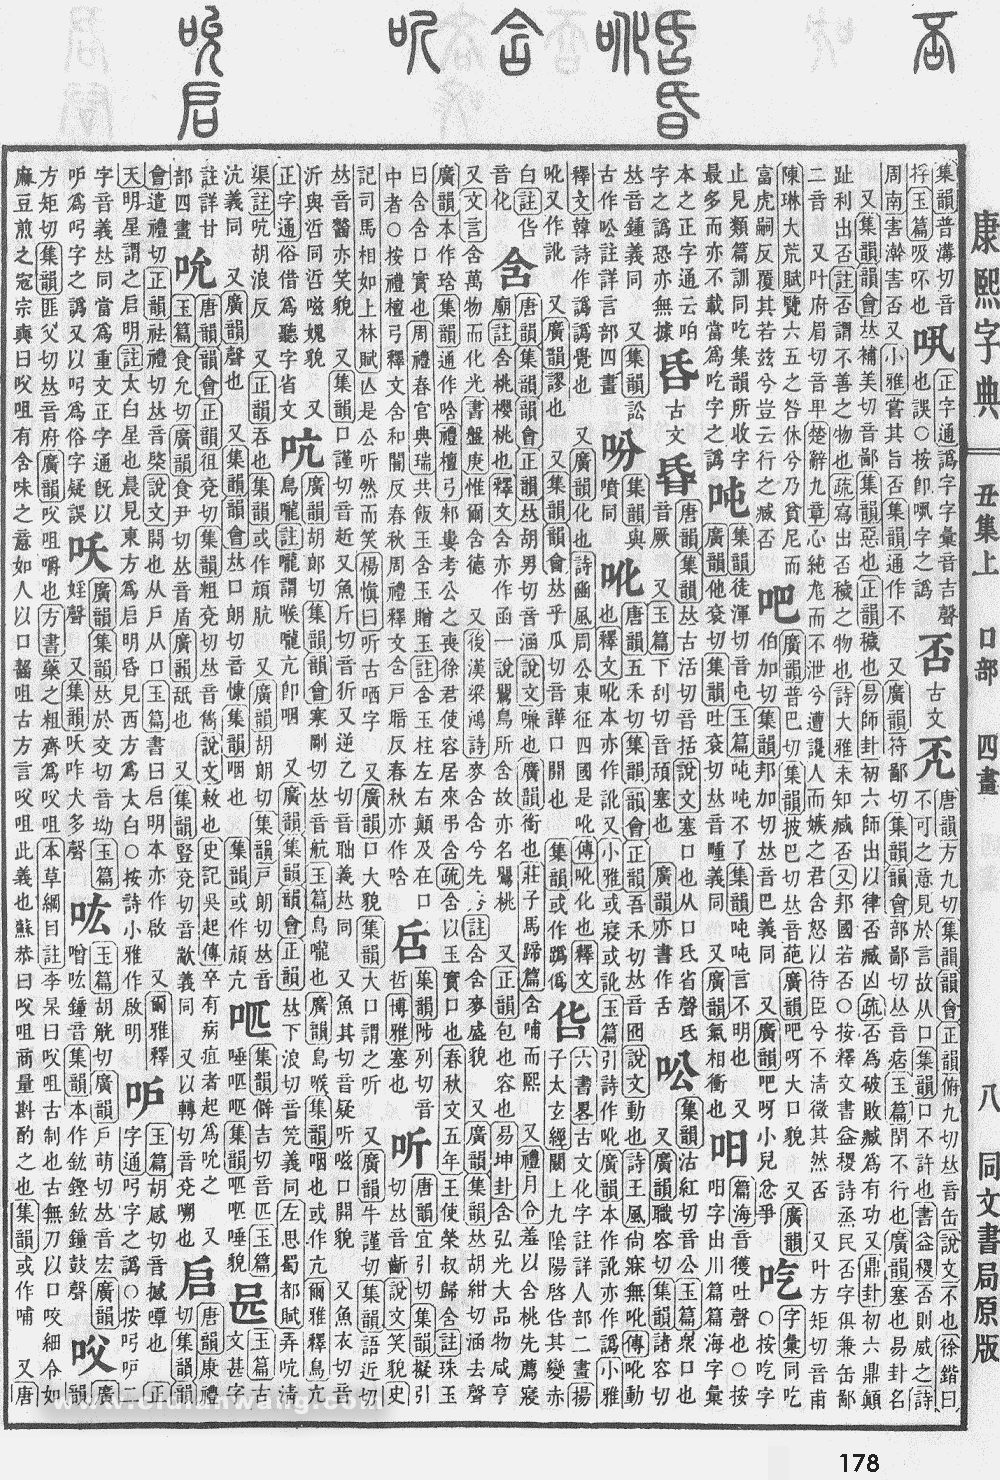 康熙字典 丑集上 口部 四畫 八 同文書局原版
集韻普溝切音
捊玉篇吸吥也
正字通譌字字彙音吉聲
也誤○按卽
否 古文
唐韻方九切集韻韻會正韻俯九切𠀤音缶說文不也徐鍇曰
不可之意見於言故从口集韻口不許也書益稷否則威之詩
周南害澣害否又小雅嘗其旨否集韻通作不 又廣韻符鄙切集韻韻會部鄙切𠀤音痞玉篇閉不行也廣韻塞也易卦名
又集韻韻會𠀤補美切音鄙集韻惡也正韻穢也易師卦初六師出以律否臧凶疏否為破敗臧為有功又鼎卦初六鼎顚
趾利出否註否謂不善之物也疏寫出否穢之物也詩大雅未知臧否又邦國若否○按釋文書益稷詩烝民否字俱兼缶鄙
二音 又叶府眉切音𤰞楚辭九章心純龐而不泄兮遭讒人而嫉之君含怒以待臣兮不淸徵其然否 又叶方矩切音甫
陳琳大荒賦覽六五之咎休兮乃貧尼而
富虎嗣反覆其若茲兮豈云行之臧否
吧
廣韻普巴切集韻披巴切𠀤音葩廣韻吧呀大口貌 又廣韻
伯加切集韻邦加切𠀤音巴義同 又廣韻吧呀小兒忿爭
吃
字彙同吃
○按吃字
止見類篇訓同吃集韻所收字
最多而亦不載當爲吃字之譌
吨
集韻徒渾切音屯玉篇吨吨不了集韻吨吨言不明也 又
廣韻他袞切集韻吐袞切𠀤音畽義同 又廣韻氣相衝也
篇海音獲吐聲也○按
字出川篇篇海字彙
本之正字通云咱
字之譌恐亦無據
古文
唐韻集韻𠀤古活切音括說文塞口也从口氒省聲氒
音厥 又玉篇下刮切音頢塞也 廣韻亦書作舌
吆
集韻沽紅切音公玉篇衆口也
又廣韻職容切集韻諸容切
𠀤音鍾義同 又集韻訟
古作吆註詳言部四畫
吩
集韻與
噴同
吪
唐韻五禾切集韻韻會正韻吾禾切𠀤音囮說文動也詩王風尙寐無吪傳吪動
也釋文吪本亦作訛又小雅或寢或訛玉篇引詩作吪廣韻本作訛亦作譌小雅
釋文韓詩作譌譌覺也 又廣韻化也詩豳風周公東征四國是吪傳吪化也釋文
吪又作訛 又廣韻謬也 又集韻韻會𠀤乎瓜切音譁口開也 集韻或作
六書畧古文化字註詳人部二畫揚
子太玄經關上九陰陽啓
其變赤
白註
音化
含
唐韻集韻韻會正韻𠀤胡男切音涵說文嗛也廣韻銜也莊子馬蹄篇含哺而熙 又禮月令羞以含桃先薦寢
廟註含桃櫻桃也釋文含亦作函一說鸎鳥所含故亦名鸎桃 又正韻包也容也易坤卦含弘光大品物咸亨
又文言含萬物而化光書盤庚惟爾含德 又後漢梁鴻詩麥含含兮先秀註含含麥盛貌 又廣韻集韻𠀤胡紺切涵去聲
廣韻本作琀集韻通作唅禮檀弓邾婁考公之喪徐君使容居來弔含疏含以玉實口也春秋文五年王使榮叔歸含註珠玉
曰含含口實也周禮春官典瑞共飯玉含玉贈玉註含玉柱左右顚及在口
中者○按禮檀弓釋文含和闇反春秋周禮釋文含戸暗反春秋亦作唅
集韻陟列切音
哲博雅塞也
听
唐韻宜引切集韻擬引
切𠀤音齗說文笑貌史
記司馬相如上林賦亾是公听然而笑楊愼曰听古哂字 又廣韻口大貌集韻大口謂之听 又廣韻牛謹切集韻語近切
𠀤音
亦笑貌 又集韻口謹切音赾又魚斤切音狺又逆乙切音耴義𠀤同 又魚其切音疑听嗞口開貌 又魚衣切音
沂與
同
嗞
貌 又
正字通俗借爲聽字省文
吭
廣韻胡郎切集韻韻會寒剛切𠀤音航玉篇鳥嚨也廣韻鳥喉集韻咽也或作亢爾雅釋鳥亢
鳥嚨註嚨謂喉嚨亢卽咽 又廣韻集韻韻會正韻𠀤下浪切音笐義同左思蜀都賦弄吭淸
渠註吭胡浪反 又正韻吞也集韻或作頏肮 又廣韻胡朗切集韻戸朗切𠀤音
沆義同 又廣韻聲也 又集韻韻會𠀤口朗切音慷集韻咽也 集韻或作頏亢
集韻僻吉切音匹玉篇
玉篇古
文甚字
註詳甘
部四畫
吮
唐韻韻會正韻徂兗切集韻粗兗切𠀤音雋說文敕也史記吳起傳卒有病疽者起爲吮之 又
玉篇食允切廣韻食尹切𠀤音盾廣韻舐也 又集韻豎兗切音歂義同 又以轉切音兗嗍也
启
唐韻康禮
切集韻韻
會遣禮切正韻袪禮切𠀤音棨說文開也从戸从口玉篇書曰启明本亦作啟 又爾雅釋
天明星謂之启明註太白星也晨見東方爲启明昏見西方爲太白○按詩小雅作啟明
玉篇胡
切音撼嘾也 正
字通
字之譌○按
二
字音義𠀤同當爲重文正字通旣以
字之譌又以
爲俗字疑誤
㕭
廣韻集韻𠀤於交切音坳玉篇
婬聲 又集韻㕭咋犬多聲
吰
玉篇胡觥切廣韻戸萌切𠀤音宏廣韻
噌吰鐘音集韻本作鈜鏗鈜鐘鼓聲
㕮
廣
韻
方矩切集韻匪父切𠀤音府廣韻㕮咀嚼也方書藥之粗齊爲㕮咀本草綱目註李杲曰㕮咀古制也古無刀以口咬細令如
麻豆煎之宼宗奭曰㕮咀有含味之意如人以口齧咀古方言㕮咀此義也蘇恭曰㕮咀商量斟酌之也集韻或作哺 又唐
178